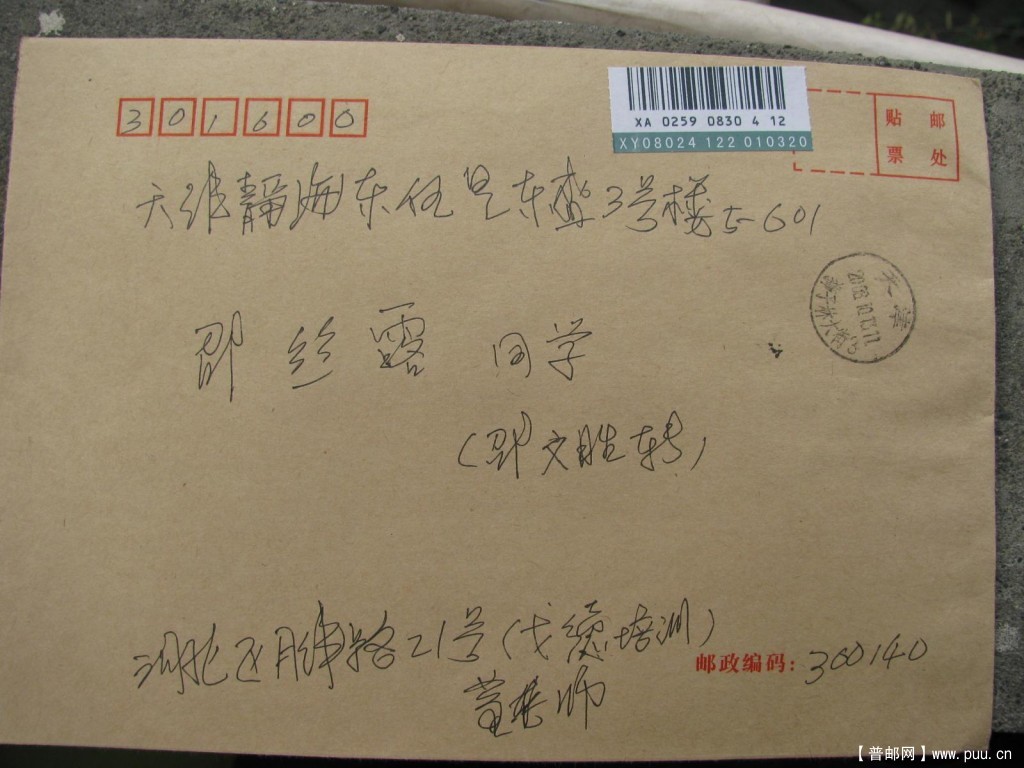 301600
XA 0259 0830 4 12
XY08024 122 010320
贴 邮
票 处
天津静海东任里东盛3号楼 601
天津
邵丝露 同学
(邵文胜转)
河北区月纬路21号(戈 培训)
邮政编码: 300140
董老师
【普邮网】www.puu.cn